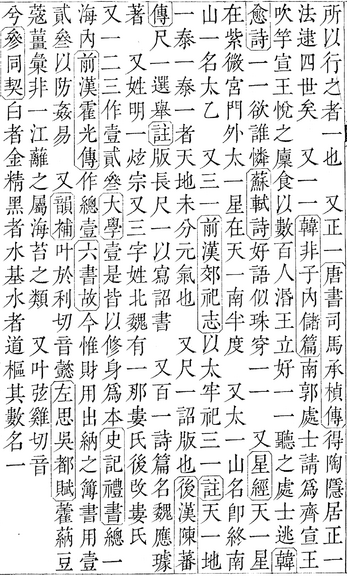 所以行之者一也　又正一唐書司馬承楨傳得陶隱居正一
法逮四世矣　又一一韓非子內儲篇南郭處士請爲齊宣王
吹竽宣王悅之廩食以數百人湣王立好一一聽之處士逃韓
愈詩一一欲誰憐蘇軾詩好語似珠穿一一　又星經天一星
在紫微宮門外太一星在天一南半度　又太一山名卽終南
山一名太乙　又三一前漢郊祀志以太牢祀三一註天一地
一泰一泰一者天地未分元氣也　又尺一詔版也後漢陳蕃
傳尺一選舉註版長尺一以寫詔書　又百一詩篇名魏應璩
著　又姓明一炫宗又三字姓北魏有一那婁氏後改婁氏
又一二三作壹貳叁大學壹是皆以修身爲本史記禮書總一
海內前漢霍光傳作總壹六書故今惟財用出納之簿書用壹
貳叁以防姦易　又韻補叶於利切音懿左思吳都賦藿蒳豆
蔻薑彙非一江蘺之屬海苔之類　又叶弦雞切音
兮參同契白者金精黑者水基水者道樞其數名一